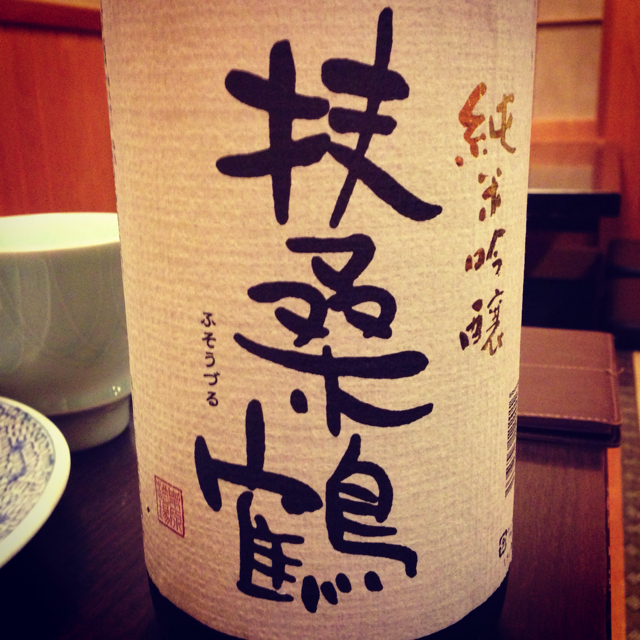 純米吟醸
扶桑鶴
ふそうづる